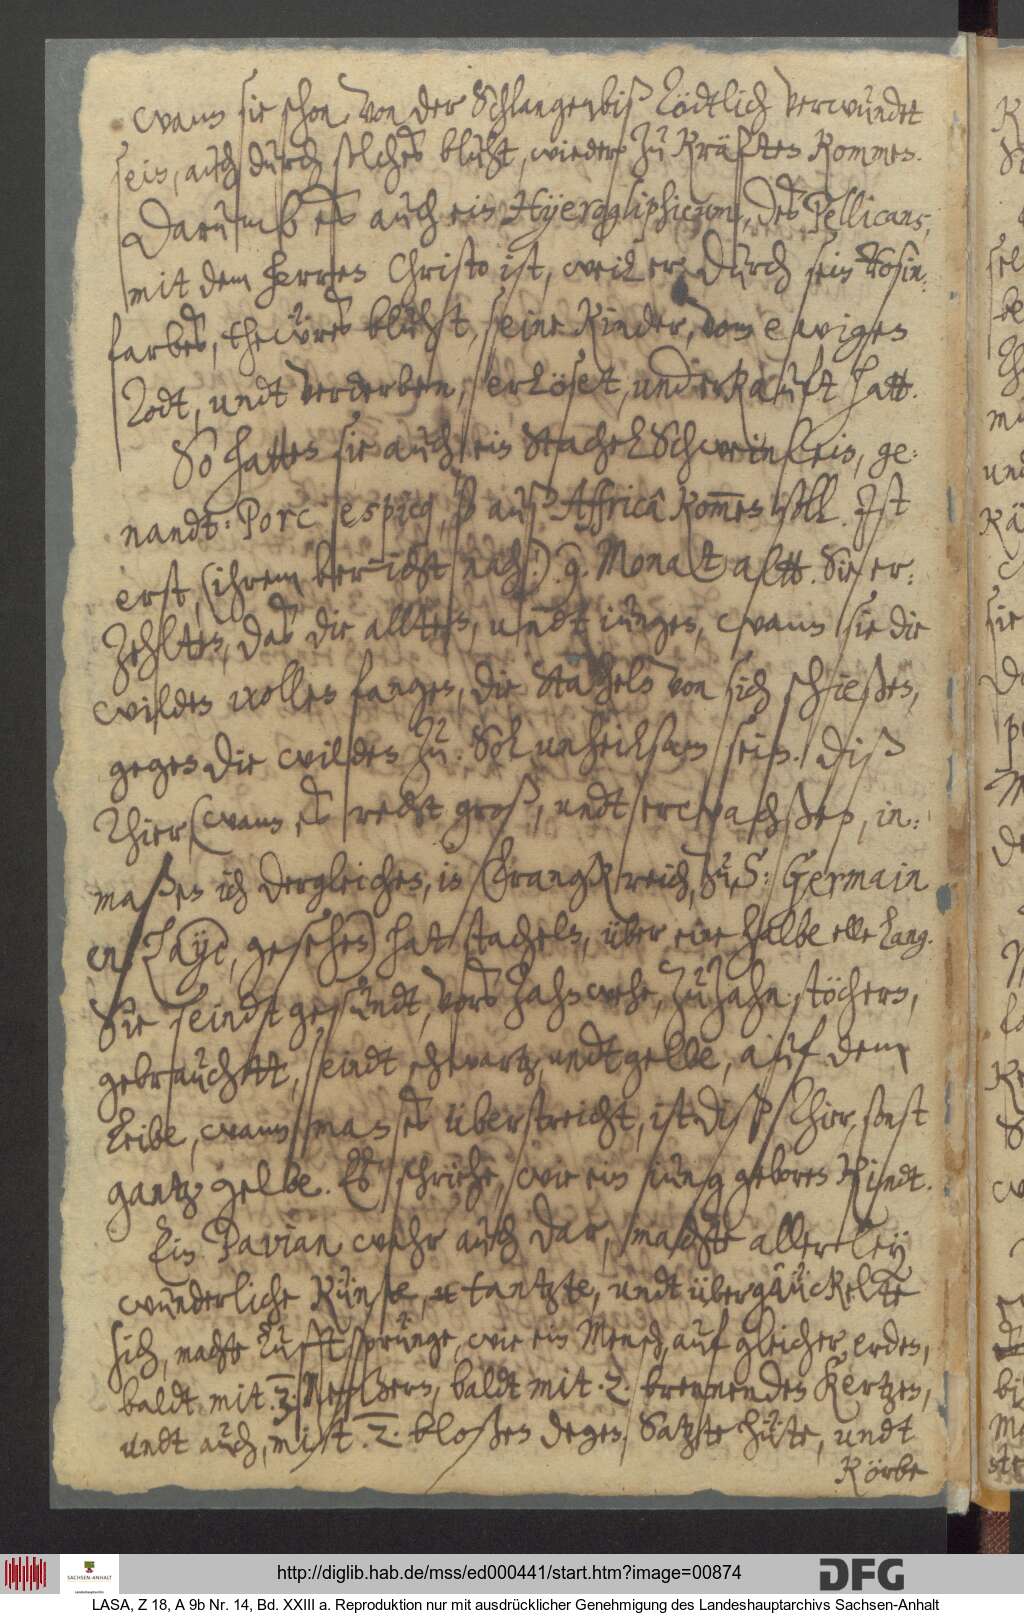 wann sie schon von der Schlangenbiß tödtlich verwundet
sein, auch durch solches bluht, wieder zu Kräften kommen.
Darumb es auch ein Hÿerogliphicum, des Pellicans,
mit dem Herren Christo ist, weil er durch sein Rosin,
farbes, theüres bluht, seine Kinder, vom ewigen
Todt, undt verderben, erlöset, und erkauft hatt.
So hatten sie auch ein Stachel Schweinlein, ge:
nandt: Porc espicq, so auß Affrica kom̄en soll. Ist
erst, (ihrem bericht nach) 9. Monat altt. Sie er:
zehlten, das die allten, undt iungen, wann sie die
wilden wollen fangen, die Stachels von sich schießen,
gegen die wilden zu. Soll unheilsam sein. Diß
Thier (wann es recht groß, undt erwachßen, in:
maßen ich dergleichen, in Franckreich, zu S: Germain
en Laye, gesehen) hat stachels, über eine halbe elle lang.
Sie seindt gesundt, vors Zahnwehe, zu Zahn stöchern,
gebrauchtt, seindt schwartz undt gelbe, auf dem
Leibe, wann man es überstreicht, ist diß Thier, sonst
gantz gelbe. Es schriehe, wie ein iung geboren Kindt.
Ein Pavian wahr auch dar, machte allerley
wunderliche Künste, tantzte, undt übergäuckelte
sich, machte Luftsprünge, wie ein Mensch, auf gleicher erden,
baldt mit .3. Meßern, baldt mit .2. brennenden Kertzen,
undt auch, mitt .2. bloßen degen, Satzte hüte, undt
Körbe
http://diglib.hab.de/mss/ed000441/start.htm?image=00874
DFG
SACHSEN-ANHALT
LASA, Z 18, A 9b Nr. 14, Bd. XXIII a. Reproduktion nur mit ausdrücklicher Genehmigung des Landeshauptarchivs Sachsen-Anhalt